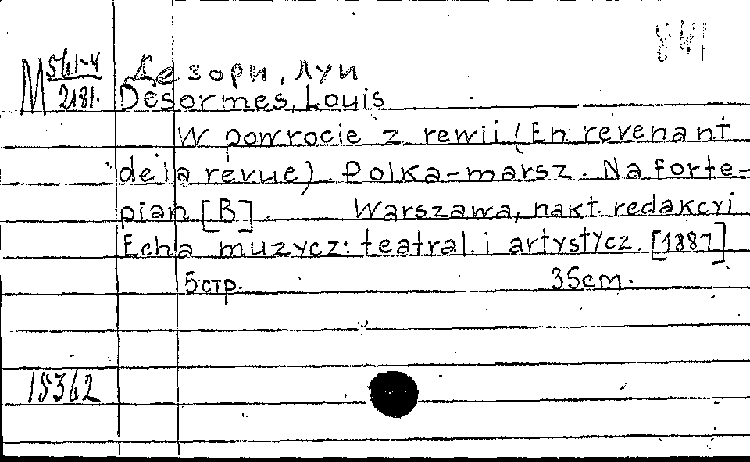 841
M 561-4/2181. Дезорм, Луи
Desormes, Louis
W powrocie z rewii (En revenant
de la revue). Polka-marsz. Na forte-
pian [B]. Warszawa, nakł. redakcyi
Echa muzycz. teatral. i artystycz. [1887]
5 стр. 35 cm.
18362